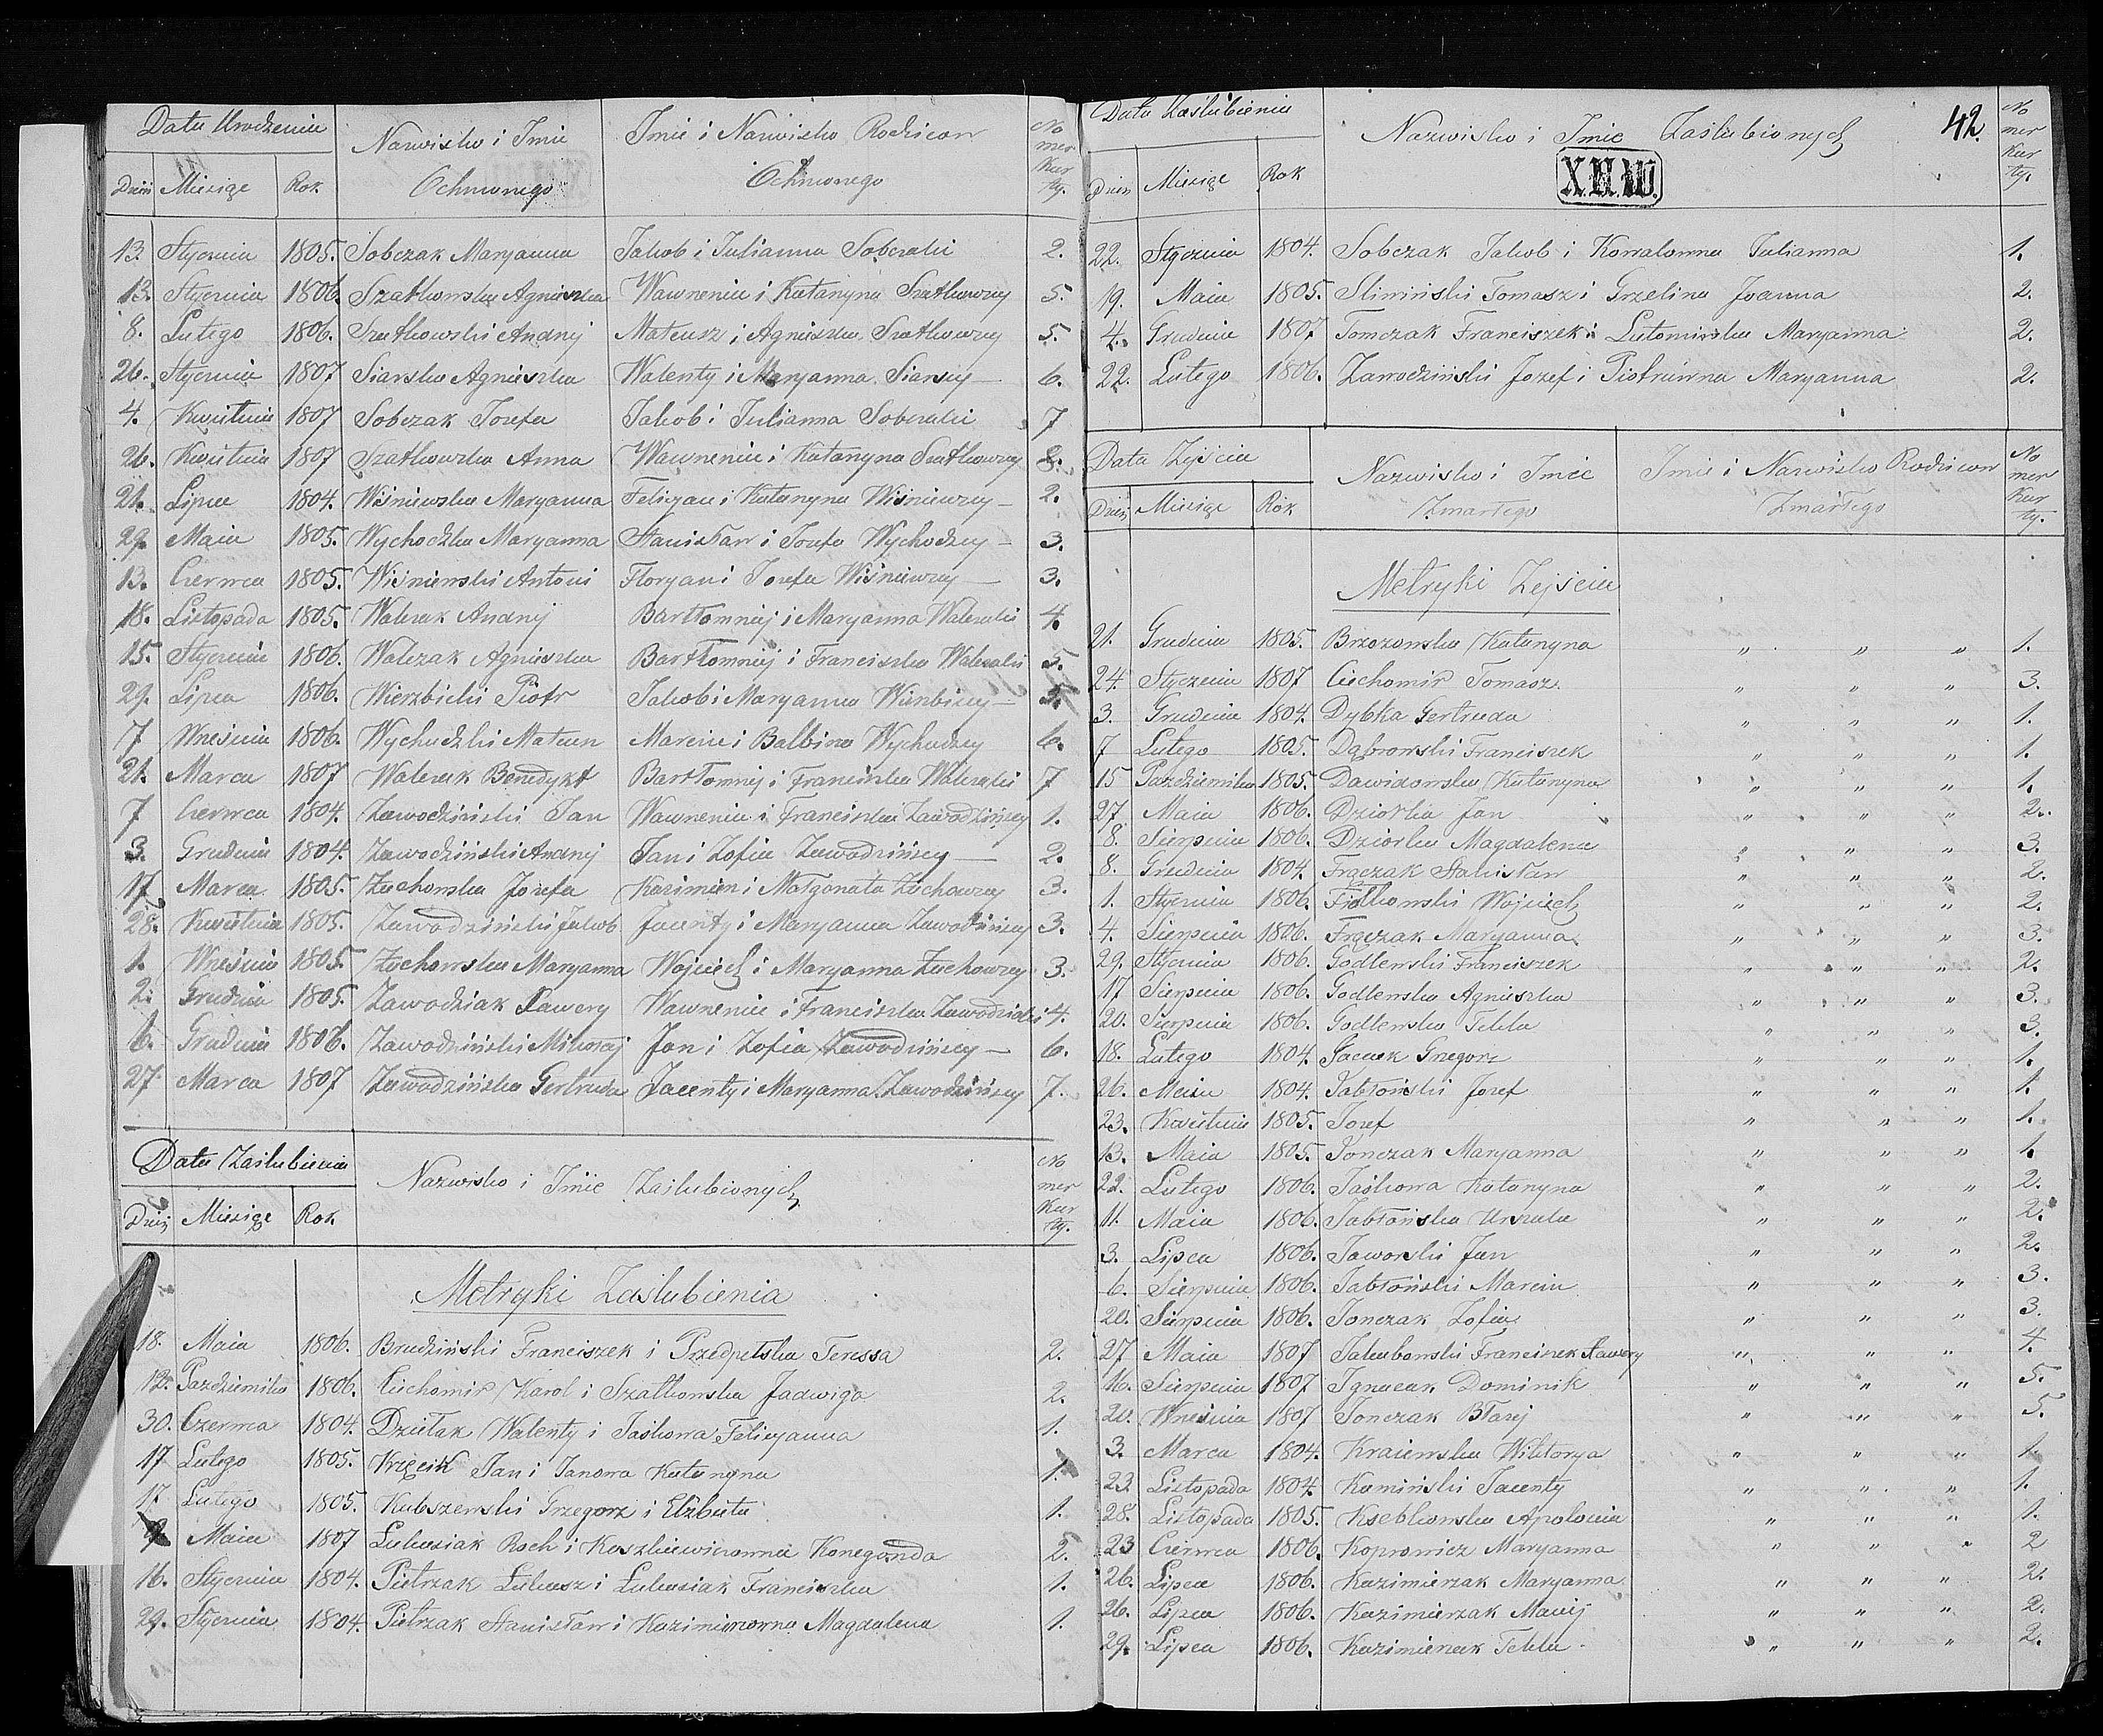 Data Urodzenia
Nazwisko i Imie
Imie i Nazwisko Rodzicow
No
mer
Kar
ty.
Dzień Miesiąc Rok
Ochrzonego
Ochrzonego
13. Stycznia 1805. Sobczak Maryanna Jakob i Julianna Sobczaki 2.
13. Stycznia 1806. Szatkowska Agnieszka Wawrzeniec i Katarzyna Szatkowscy 5.
8. Lutego 1806. Szatkowski Andrzej Mateusz i Agnieszka Szatkowscy 5.
26. Stycznia 1807 Siarska Agnieszka Walenty i Maryanna Siarscy 6.
4. Kwietnia 1807 Sobczak Jozefa Jakob i Julianna Sobczaki 7
26. Kwietnia 1807 Szatkowska Anna Wawrzeniec i Katarzyna Szatkowscy 8.
21. Lipca 1804. Wiśniewska Maryanna Felicyan i Katarzyna Wiśniewscy 2.
29. Maia 1805. Wychodzka Maryanna Stanisław i Jozefa Wychodzcy 3.
13. Czerwca 1805. Wiśniewski Antoni Floryan i Jozefa Wiśniewscy 3.
18. Listopada 1805. Walczak Andrzej Bartłomniej i Maryanna Walczaki 4.
15. Stycznia 1806. Walczak Agnieszka Bartłomniej i Franciszka Walczaki 5.
29. Lipca 1806. Wierzbicki Piotr Jakob i Maryanna Wierzbiccy
7 Września 1806. Wychudzki Mateusz Marcin i Balbina Wychudzcy 6.
21. Marca 1807 Walczak Benedykt Bartłomniej i Franciszka Walczaki 7
7 Czerwca 1804. Zawodziński Jan Wawrzeniec i Franciszka Zawodzińscy 1.
3. Grudnia 1804. Zawodziński Andrzej Jan i Zofia Zawodzińscy 2.
17 Marca 1805. Zuchowska Jozefa Kazimierz i Małgorzata Zuchowscy 3.
28. Kwietnia 1805. Zawodziński Jakob Jacenty i Maryanna Zawodzińscy 3.
1. Września 1805. Zuchowska Maryanna Wojciech i Maryanna Zuchowscy 3.
2. Grudnia 1805. Zawodziak Xawery Wawrzeniec i Franciszka Zawodziaki 4.
6. Grudnia 1806. Zawodziński Mikołaj Jan i Zofia Zawodzińscy 6.
27 Marca 1807 Zawodzińska Gertruda Jacenty i Maryanna Zawodzińscy 7.
Data Zaślubienia
Nazwisko i Imie Zaślubionych
No
mer
Kar
ty.
Dzień Miesiąc Rok
Metryki Zaślubienia
18. Maia 1806. Brudziński Franciszek i Przedpełska Teressa 2.
12. Pazdziernika 1806. Ciechomir Karol i Szatkowska Jadwiga 2.
30. Czerwca 1804. Dzietak Walenty i Jaśkowa Felicyanna 1.
17 Lutego 1805. Krzęcik Jan i Janowa Katarzyna 1.
17. Lutego 1805. Kubszewski Grzegorz i Elżbieta 1.
Maia 1807 Lukasiak Roch i Koszkiewiczowna Konegonda 2.
16. Stycznia 1804. Pietrzak Łukasz i Łukasiak Franciszka 1.
29. Stycznia 1804. Pietrzak Stanisław i Kazimierowna Magdalena 1.
Data Zaślubienia
Nazwisko i Imie Zaślubionych
42.
No
mer
Kar
ty.
Dzień Miesiąc Rok
X.H.W.
22. Stycznia 1804. Sobczak Jakob i Kowalowna Julianna 1.
19. Maia 1805. Sliwiński Tomasz i Grzelina Joanna 2.
4. Grudnia 1807 Tomczak Franciszek i Lutomirska Maryanna 2.
22. Lutego 1806. Zawodziński Jozef i Piotrówna Maryanna 2.
Data Zejścia
Nazwisko i Imie
Imie i Nazwisko Rodzicow
No
mer
Kar
ty.
Dzień Miesiąc Rok
Zmarłego
Zmarłego
Metryki Zejścia
21. Grudnia 1805. Brzozowska Katarzyna " " " 1.
24. Stycznia 1807 Ciechomir Tomasz " " " 3.
3. Grudnia 1804. Dybka Gertruda " " " 1.
7 Lutego 1805. Dąbrowski Franciszek " " " 1.
15 Pazdziernika 1805. Dawidowska Katarzyna " " " 1.
27 Maia 1806. Dziorka Jan " " " 2.
8. Sierpnia 1806. Dziorka Magdalena " " " 3.
8. Grudnia 1804. Frączak Stanisław " " " 2.
1. Stycznia 1806. Fiołkowski Wojciech " " " 2.
4. Sierpnia 1806. Frączak Maryanna " " " 3.
29. Stycznia 1806. Godlewski Franciszek " " " 2.
17 Sierpnia 1806. Godlewska Agnieszka " " " 3.
20. Sierpnia 1806. Godlewska Tekla " " " 3.
18. Lutego 1804. Grzegorz " " " 1.
26. Maia 1804. Jabłoński Jozef " " " 1.
23. Kwietnia 1805. Jozef " " " 1.
13. Maia 1805. Jonczak Maryanna " " " 1.
22. Lutego 1806. Jaśkowa Katarzyna " " " 2.
11. Maia 1806. Jabłońska Urszula " " " 2.
3. Lipca 1806. Jaworski Jan " " " 2.
6. Sierpnia 1806. Jabłoński Marcin " " " 3.
20. Sierpnia 1806. Jonczak Zofia " " " 3.
27 Maia 1807 Jakubowski Franciszek Xawery " " " 4.
16. Sierpnia 1807 Ignacak Dominik " " " 5.
20. Września 1807 Jonczak Błażej " " " 5.
3. Marca 1804. Kraiewska Wiktorya " " " 1.
23. Listopada 1804. Kamiński Jacenty " " " 1.
28. Listopada 1805. Apolonia " " " 1.
23 Czerwca 1806. Koprowicz Maryanna " " " 2
26. Lipca 1806. Kazimierzak Maryanna " " " 2.
26. Lipca 1806. Kazimierzak Maciej " " " 2.
29. Lipca 1806. Kazimierzak Tekla " " " 2.